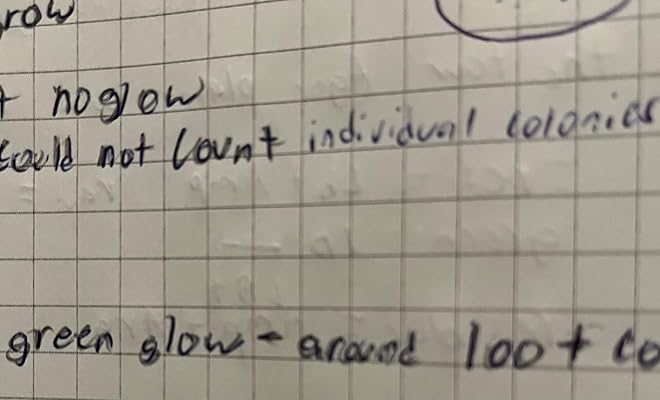 row
+ no glow
could not count individual colonies
green glow - around 100+ co